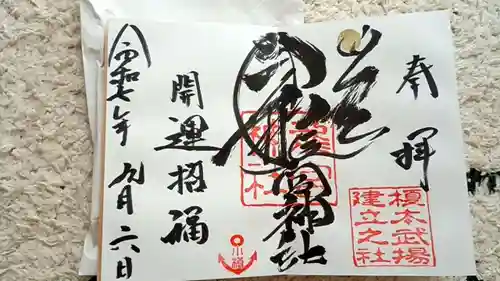 奉拝
龍宮神社
開運招福
令和七年九月六日
榎本武揚
建立之社
小樽